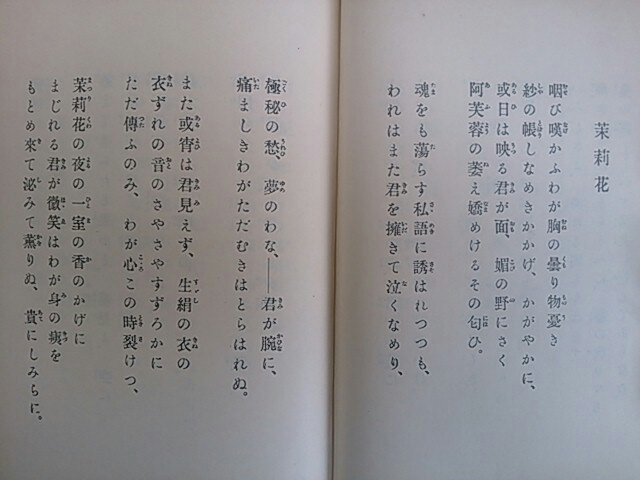 茉莉花
咽び嘆かふわが胸の曇り物憂き
紗の帳しなめきかかげ、かがやかに、
或日は映る君が面、媚の野にさく
阿芙蓉の萎え嬌めけるその匂ひ。
魂をも蕩らす私語に誘はれつつも、
われはまた君を擁きて泣くなめり、
極秘の愁、夢のわな、――君が腕に、
痛ましきわがただむきはとらはれぬ。
また或宵は君見えず、生絹の衣の
衣ずれの音のさやさやすずろかに
ただ傳ふのみ、わが心この時裂けつ、
茉莉花の夜の一室の香のかげに
まじれる君が微笑はわが身の痍を
もとめ來て沁みて薫りぬ、貴にしみらに。